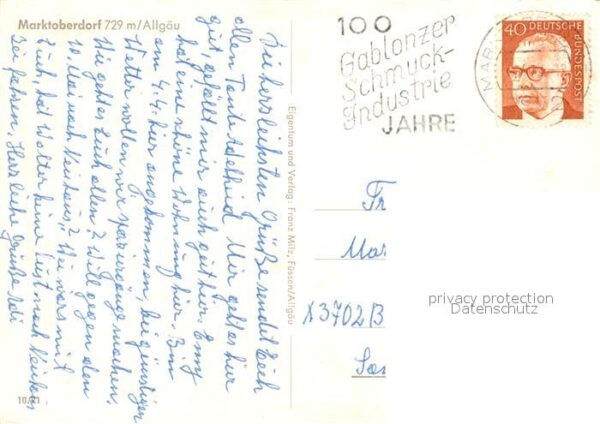 Marktoberdorf 729 m/Allgäu
Die herzlichsten Grüße sendet Euch
allen Tante Adelheid. Mir geht es hier
gut, gefällt mir auch gut hier. Emmy
hat eine schöne Wohnung hier. Bin
am 4.4. hier angekommen, bei günstiger
Wetter wollen wir spazieren machen.
Wie geht es Euch allen? Will gegen den
10. Mai nach Neuhaus,
Euch, hat Walter keine Lust nach
zu fahren. Herzliche Grüße
10/21
Eigentum und Verlag: Franz Milz, Füssen/Allgäu
100
Gablonzer
Schmuck-
Industrie
JAHRE
MAR
40 DEUTSCHE
BUNDESPOST
Fr
Mar
X3702 B
privacy protection
Datenschutz